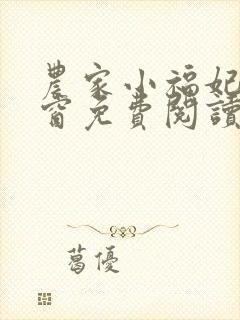 農家小福妃
窗免費閱讀
葛優